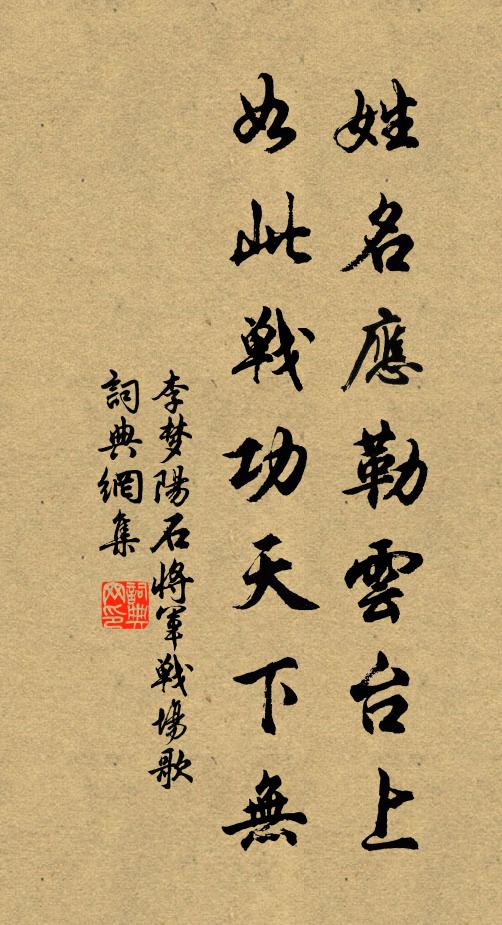 姓名應勒雲台上
如此戰功天下無
李梦陽石將軍戰場歌
詞典網集
詞典網印